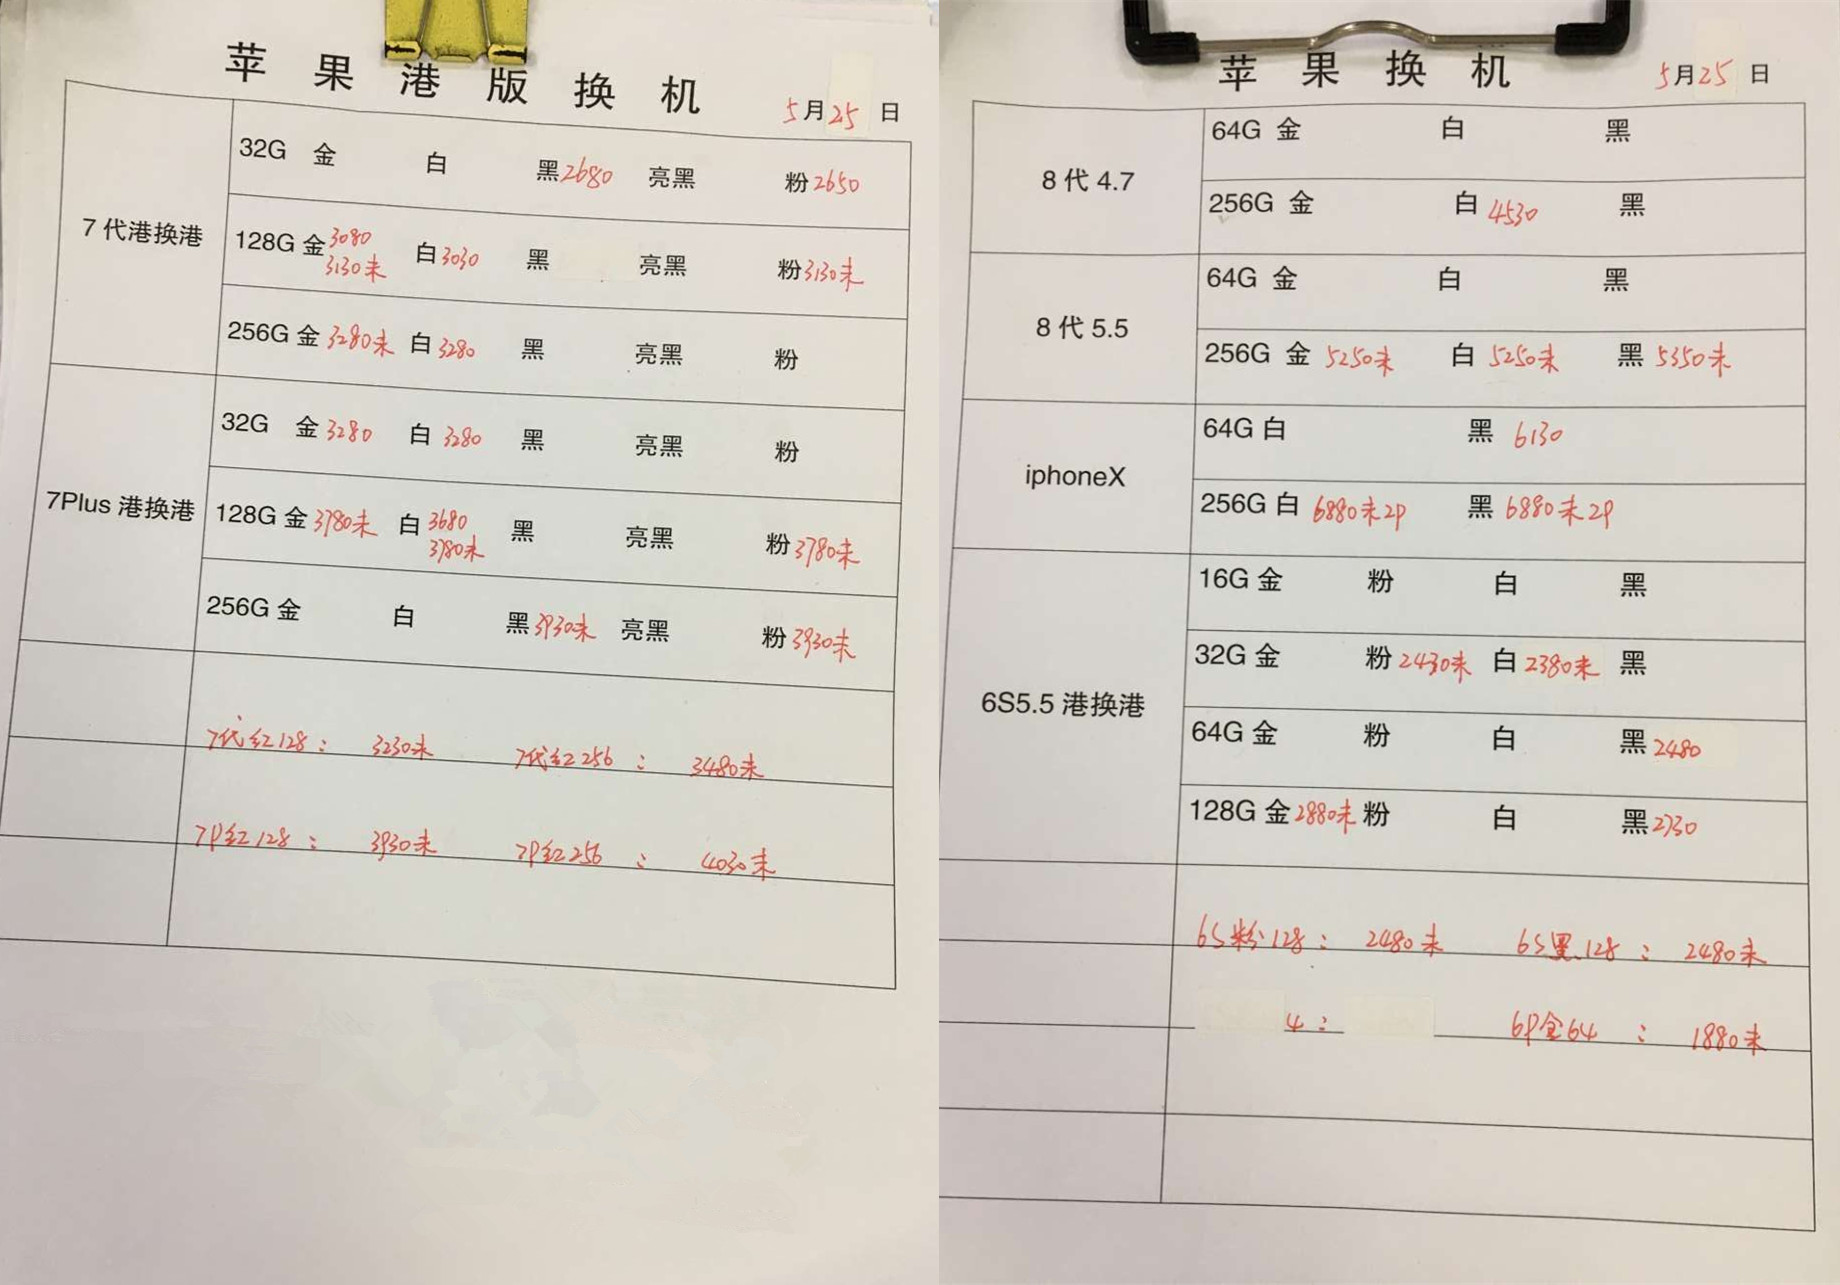 苹果港版换机
5月25日
7代港换港
32G 金 白 黑2680 亮黑 粉2650
128G 金3080 3130未 白3030 黑 亮黑 粉3130未
256G 金3280未 白3280 黑 亮黑 粉
7Plus港换港
32G 金3280 白3280 黑 亮黑 粉
128G 金3780未 白3680 3780未 黑 亮黑 粉3780未
256G 金 白 黑3930未 亮黑 粉3930未
7代红128： 3230未 7代红256： 3480未
7P红128： 3930未 7P红256： 4030未
苹果换机
5月25日
8代4.7
64G 金 白 黑
256G 金 白4530 黑
8代5.5
64G 金 白 黑
256G 金5250未 白5250未 黑5350未
iphoneX
64G 白 黑6130
256G 白6880未2P 黑6880未2P
6S5.5港换港
16G 金 粉 白 黑
32G 金 粉2430未 白2380未 黑
64G 金 粉 白 黑2480
128G 金2880未 粉 白 黑2730
6S粉128： 2480未 6S黑128： 2480未
4： 6P金64： 1880未